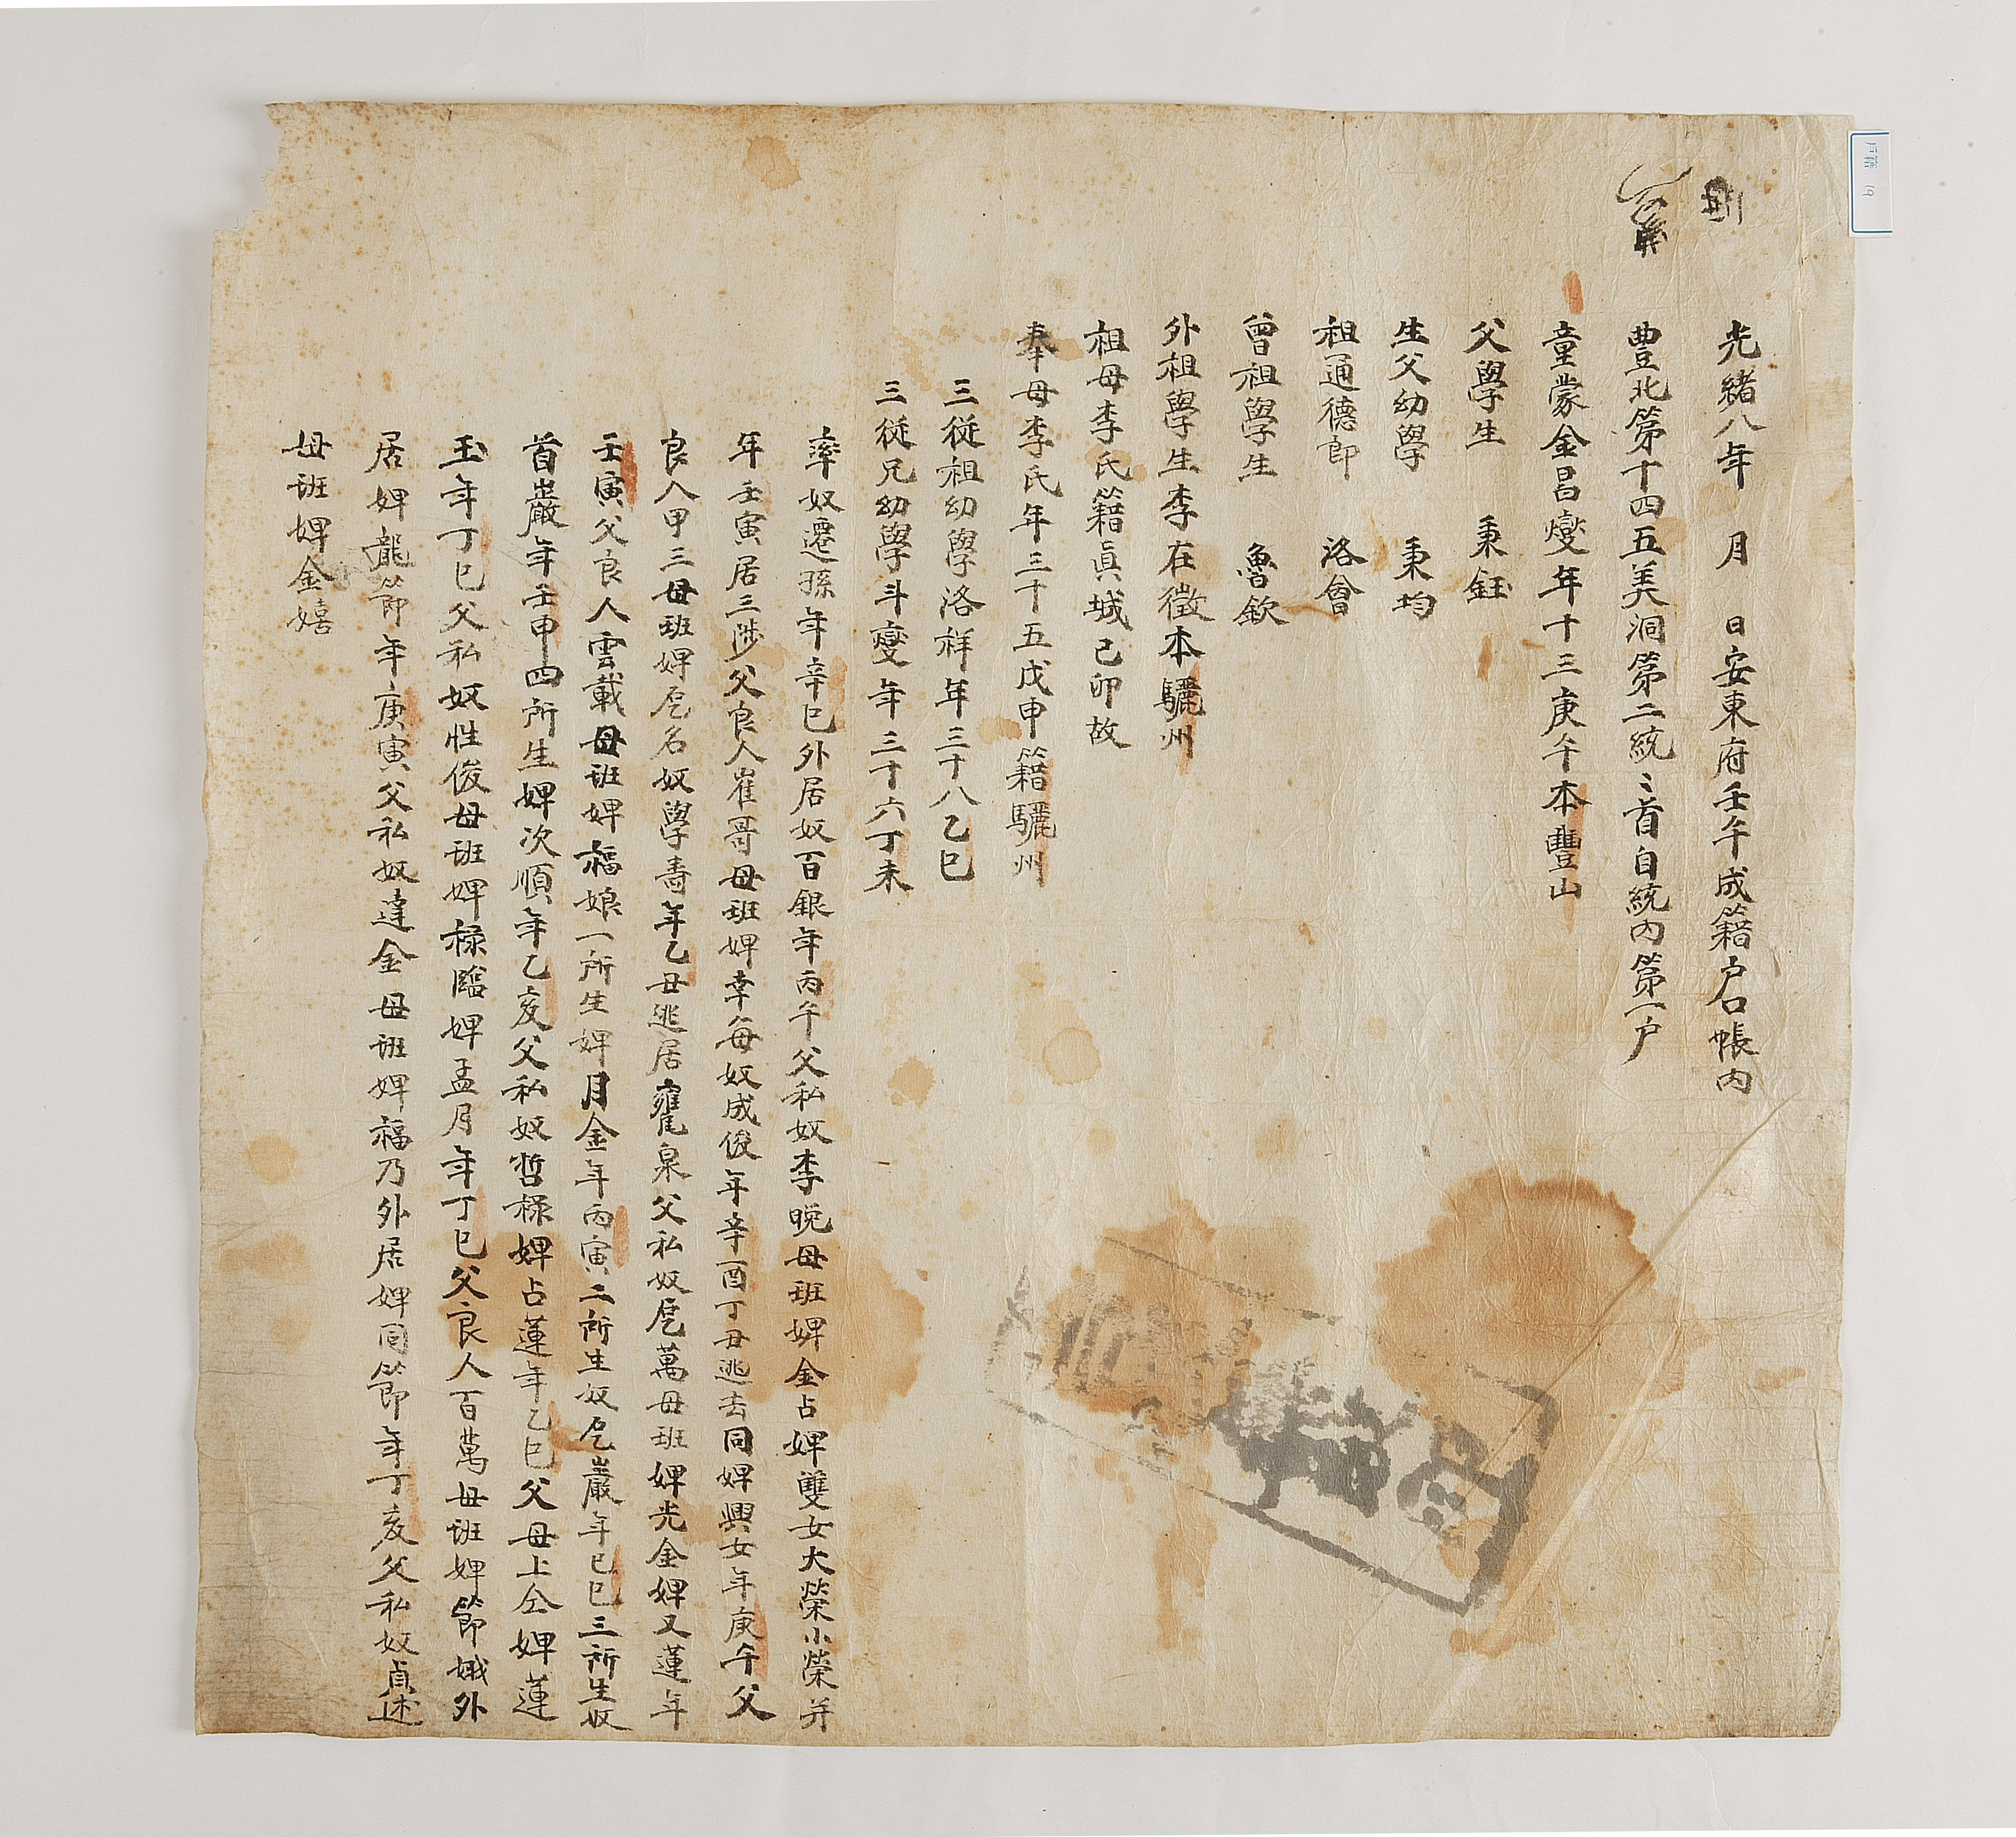 戶籍 19
光緖八年 月 日安東府壬午成籍户口帳內
豊北第十四五美洞第二統〻首自統內第一户
童蒙金昌燮年十三庚午本豊山
父學生 秉鈺
生父幼學 秉均
祖通德郎 洛會
曾祖學生 魯欽
外祖學生李在徵本驪州
祖母李氏籍眞城己卯故
奉母李氏年三十五戊申籍驪州
三從祖幼學洛祥年三十八乙巳
三從兄幼學斗燮年三十六丁未
率奴還孫年辛巳外居奴百銀年丙午父私奴李晩母班婢金占婢雙女大榮小榮并
年壬寅居三陟父良人崔哥母班婢幸每奴成俊年辛酉丁丑逃去同婢興女年庚午父
良人甲三母班婢巵名奴學壽年乙丑逃居甕泉父私奴巵萬母班婢光金婢又蓮年
壬寅父良人雲載母班婢福娘一所生婢月金年丙寅二所生奴巵巖年己巳三所生奴
首巖年壬申四所生婢次順年乙亥父私奴哲祿婢占蓮年乙巳父母上仝婢蓮
玉年丁巳父私奴性俊母班婢祿臨婢孟月年丁巳父良人百萬母班婢節娥外
居婢龍節年庚寅父私奴達金母班婢福乃外居婢同節年丁亥父私奴貞述
母班婢金嬉